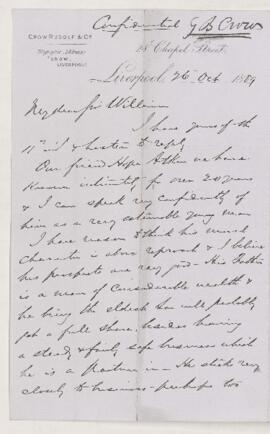 Confidential G B Crow
CROW RUDOLF & CO
LIVERPOOL
18 Chapel Street
Liverpool 26 Oct 1889
My dear Sir William
I have yours of the
& hasten to reply
Our friend Hope I have
known intimately for over 20 years
& I can speak very confidently of
him as a very estimable young man
I have reason to think his moral
character is above reproach & I believe
his prospects are very good - His Father
is a man of considerable wealth &
he being the eldest son will probably
get a full share, besides having
a steady & fairly safe business which
he is a Partner in - He sticks very
closely to business - perhaps too